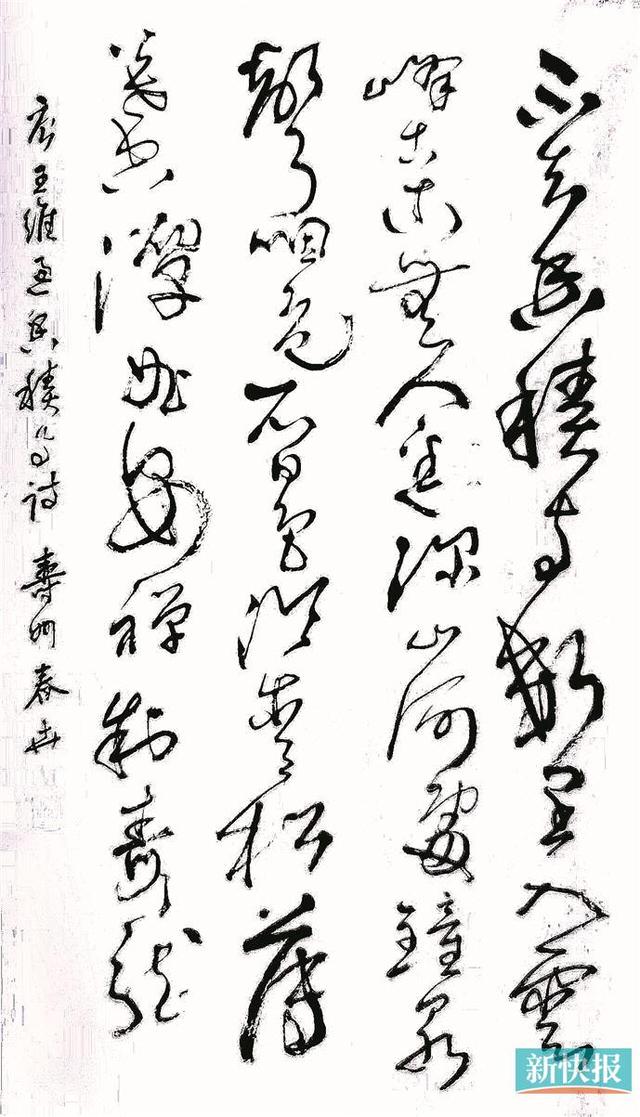 不知香積寺數里入雲
峰古木無人逕深山何處鐘泉
聲咽危石日色冷青松薄
暮空潭曲安禪制毒龍
唐王維過香積寺詩 壽州春
新快报